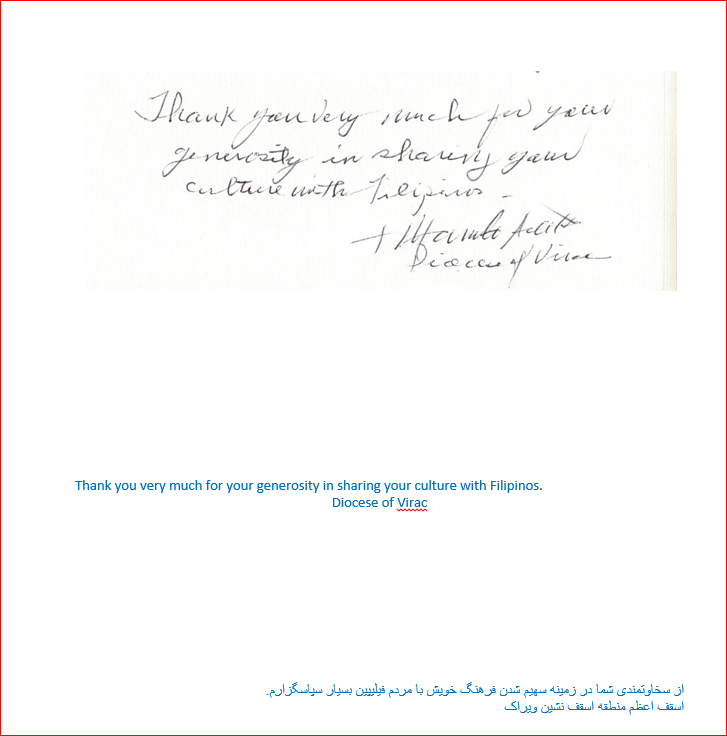 Thank you very much for your
generosity in sharing your
culture with Filipinos -
Diocese of Virac
Thank you very much for your generosity in sharing your culture with Filipinos.
Diocese of Virac
از سخاوتمندی شما در زمینه سهیم شدن فرهنگ خویش با مردم فیلیپین بسیار سپاسگزارم.
اسقف اعظم منطقه اسقف نشین ویراک